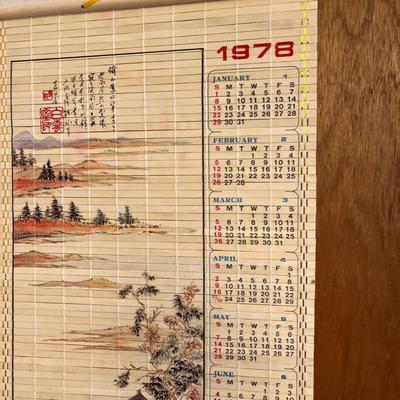 1978
JANUARY 1
S M T W T F S
1 2 3 4 5 6 7
8 9 10 11 12 13 14
15 16 17 18 19 20 21
22 23 24 25 26 27 28
29 30 31
FEBRUARY 2
S M T W T F S
1 2 3 4
5 6 7 8 9 10 11
12 13 14 15 16 17 18
19 20 21 22 23 24 25
26 27 28
MARCH 3
S M T W T F S
1 2 3 4
5 6 7 8 9 10 11
12 13 14 15 16 17 18
19 20 21 22 23 24 25
26 27 28 29 30 31
APRIL 4
S M T W T F S
1
2 3 4 5 6 7 8
9 10 11 12 13 14 15
16 17 18 19 20 21 22
23/30 24 25 26 27 28 29
MAY 5
S M T W T F S
1 2 3 4 5 6
7 8 9 10 11 12 13
14 15 16 17 18 19 20
21 22 23 24 25 26 27
28 29 30 31
JUNE 6
S M T W T F S
1 2 3
4 5 6 7 8 9 10